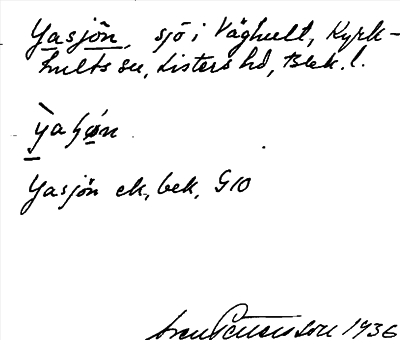 Yasjön, sjö i Våghult, Kyrk-
hults sn, Listers hd, Blek. l.
Yasjön ek, bek, G10
Sven Pettersson 1936